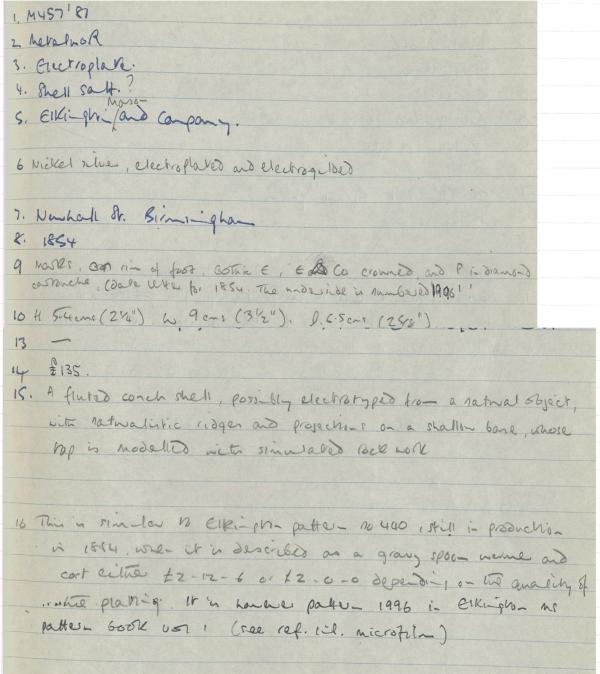 1. M457'87
2 Metalwork
3. Electroplate.
4. Shell salt. ?
5. Elkington Mason and Company.
6 Nickel silver, electroplated and electrogilded
7. Newhall St. Birmingham
8. 1854
9 Marks, on rim of foot, Gothic E, E & Co crowned, and P in diamond
cartouche, (date letter for 1854. The underside is numbered '1996'
10 H 5.4cms (2¼") W. 9cms (3½"). D. 6.5cms (2⅝")
13 —
14 £135.
15. A fluted conch shell, possibly electrotyped from a natural object,
with naturalistic ridges and projections on a shallow base, whose
top is modelled with simulated rock work
16 This is similar to Elkington pattern no 440, still in production
in 1884, when it is described as a gravy spoon warmer and
cost either £2-12-6 or £2-0-0 depending on the quality of
the plating. It is however pattern 1996 in Elkington ms
pattern book vol 1 (see ref. microfilm)